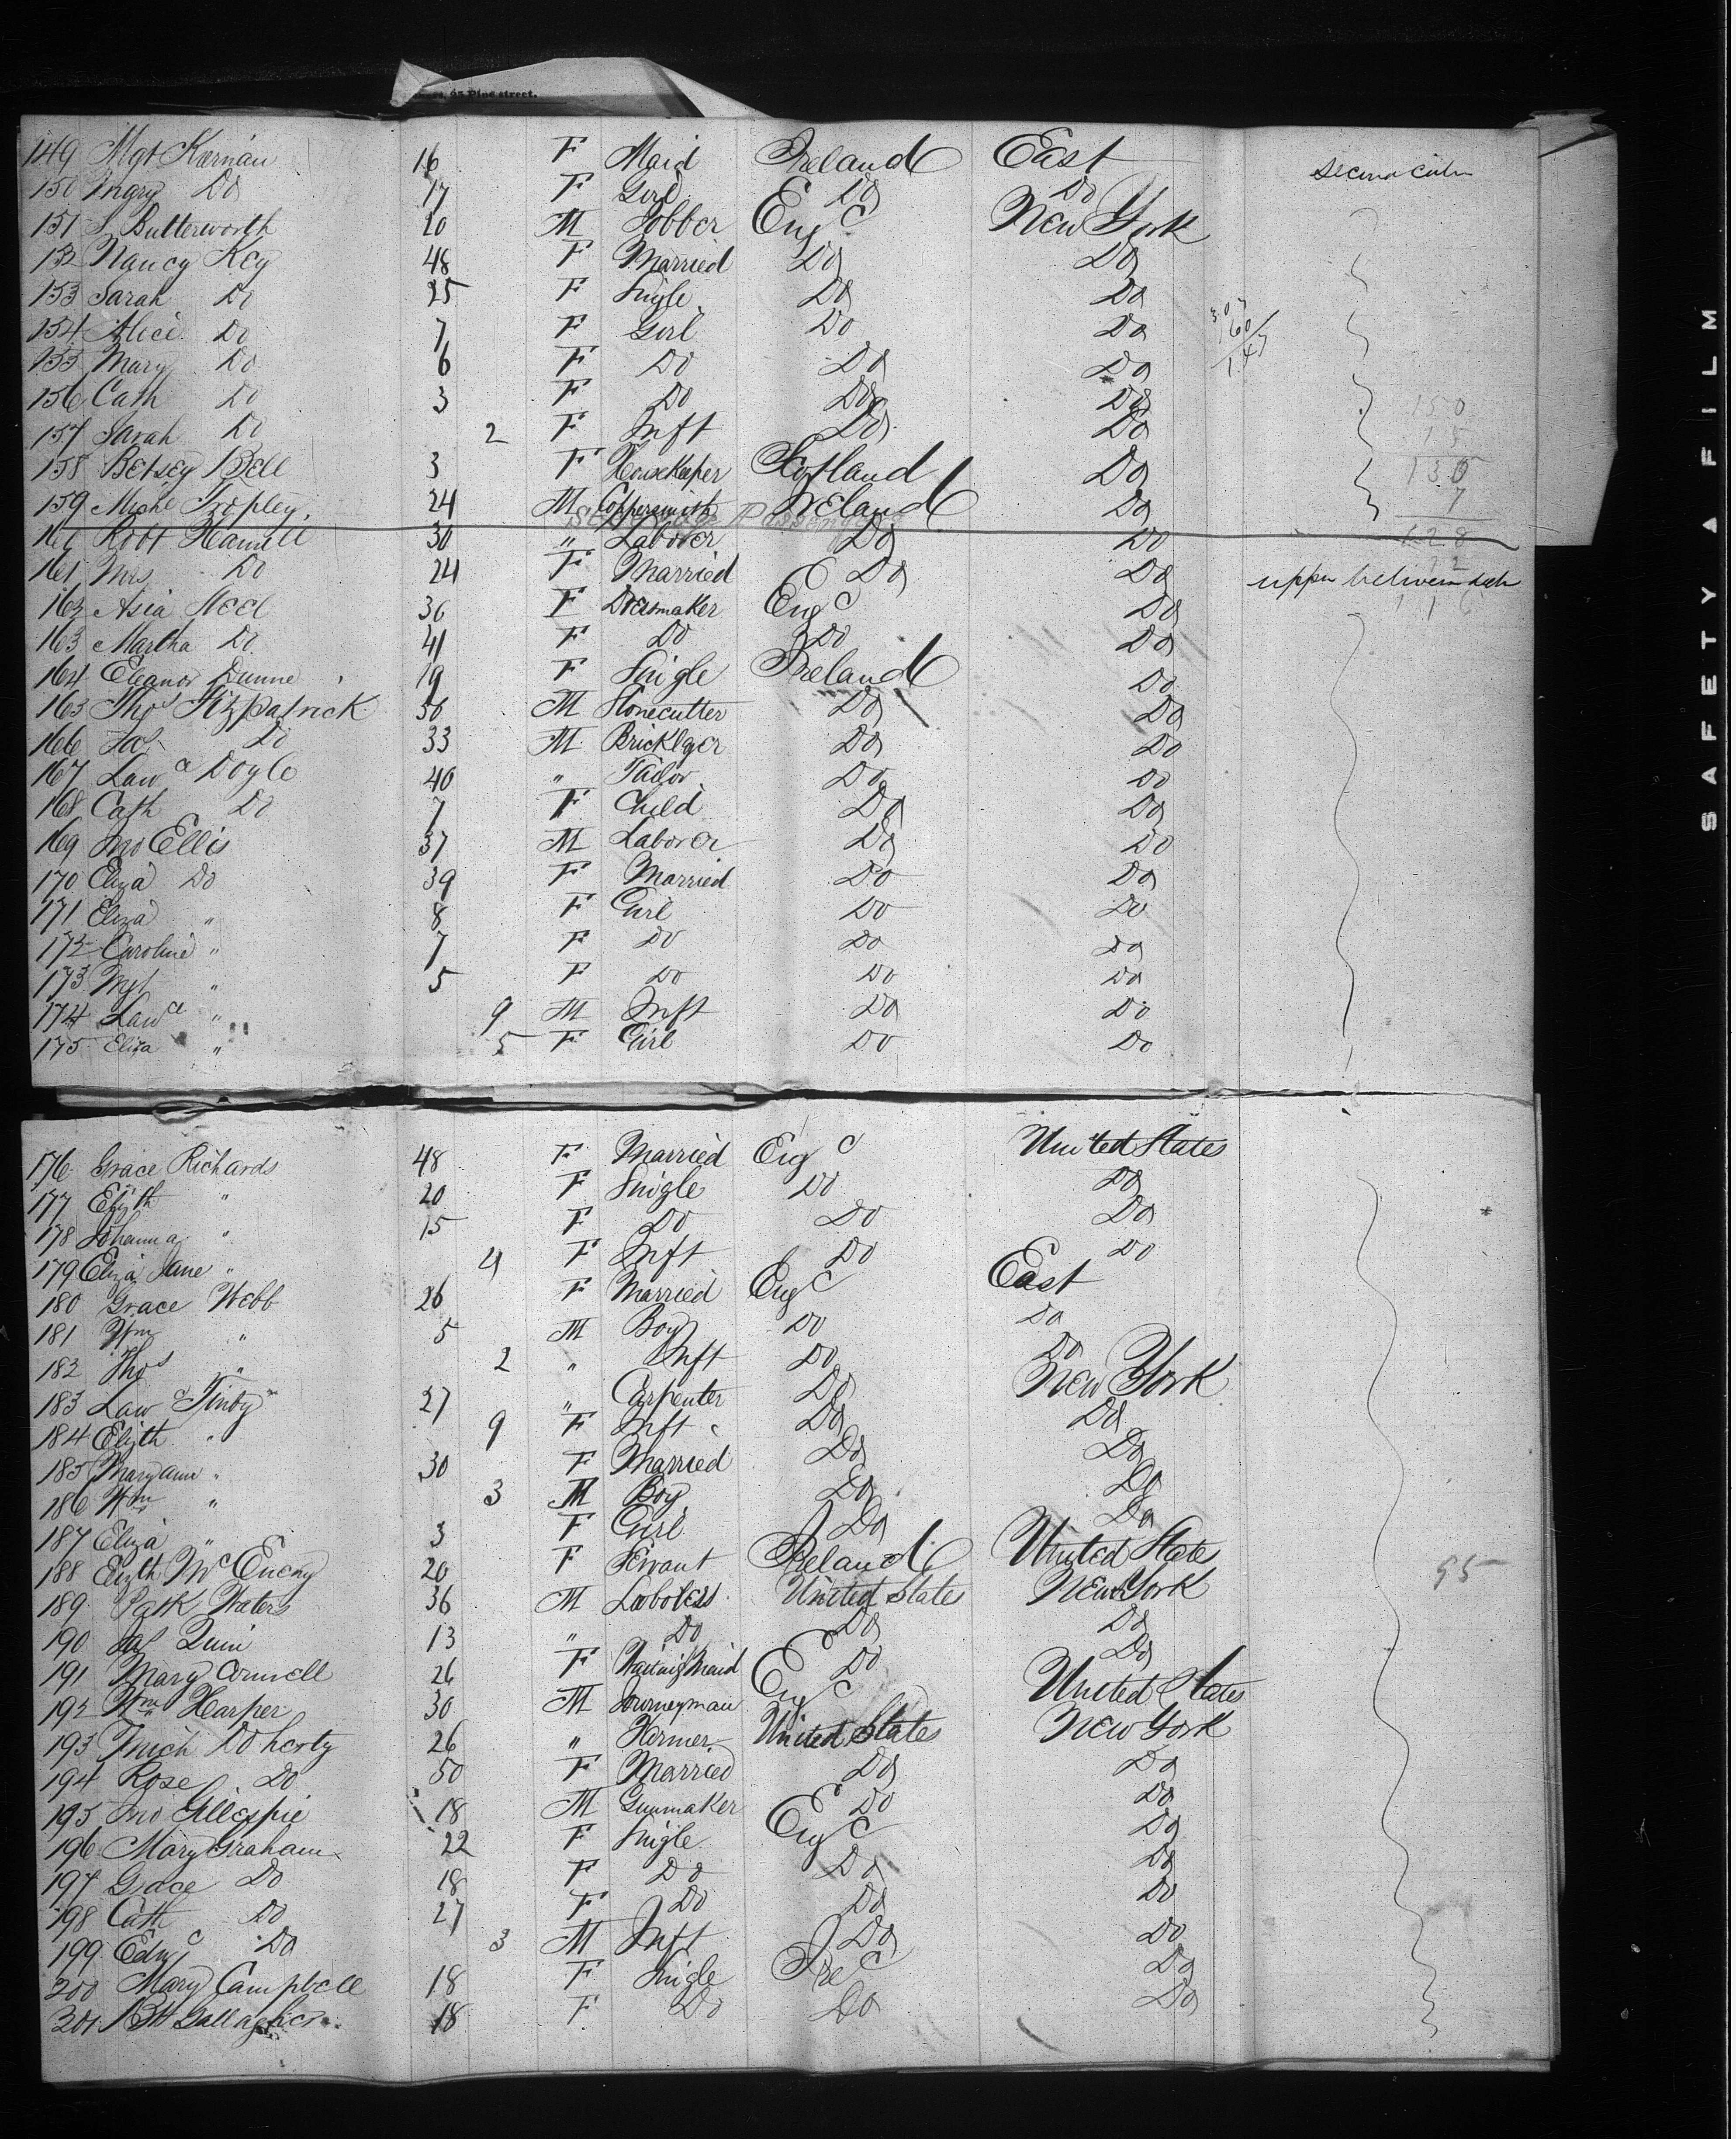 95 Pine street.
149 Mgt Kernan 16 F Maid Ireland East Second cabin
150 Mary Do 17 F Girl Do Do
151 S Butterworth 20 M Jobber Eng d New York
152 Nancy Key 48 F Married Do Do
153 Sarah Do 25 F Single Do Do
154 Alice Do 7 F Girl Do Do
155 Mary Do 6 F Do Do Do
156 Cath Do 3 F Do Do Do
157 Sarah Do 2 F Inft Do Do
158 Betsey Bell 3 F Housekeeper Scotland Do
159 Mich Tropley 24 M Coppersmith Ireland Do
160 Robt Hamill 30 " Laborer Do Do
161 Mrs Do 24 F Married Do Do upper between deck
162 Asia Steel 36 F Dressmaker Eng d Do
163 Martha Do 41 F Do Do Do
164 Eleanor Dunne 19 F Single Ireland Do
165 Thos Fitzpatrick 50 M Stonecutter Do Do
166 Jas Do 33 M Bricklyer Do Do
167 Lawce Doyle 40 " Tailor Do Do
168 Cath Do 7 F Child Do Do
169 Jno Ellis 37 M Laborer Do Do
170 Eliza Do 39 F Married Do Do
171 Eliza " 8 F Girl Do Do
172 Caroline " 7 F Do Do Do
173 Mgt " 5 F Do Do Do
174 Lawce " 9 M Inft Do Do
175 Eliza " 5 F Girl Do Do
176 Grace Richards 48 F Married Eng d United States
177 Elizth " 20 F Single Do Do
178 Johanna " 15 F Do Do Do
179 Eliza Jane " 4 F Inft Do Do
180 Grace Webb 26 F Married Eng d East
181 Wm " 5 M Boy Do Do
182 Thos " 2 " Inft Do Do
183 Lawce Finby 27 " Carpenter Do New York
184 Elizth " 9 F Inft Do Do
185 Maryann " 30 F Married Do Do
186 Wm " 3 M Boy Do Do
187 Eliza " 3 F Girl Do Do
188 Elizth McEneny 20 F Servant Ireland United State
189 Patk Waters 36 M Laborers United State New York
190 Jas Quin 13 " Do Do Do
191 Mary Connell 26 F Waiting Maid Do Do
192 Wm Harper 30 M Journeyman Eng d United States
193 Mich Doherty 26 " Farmer United States New York
194 Rose Do 50 F Married Do Do
195 Jno Gillespie 18 M Gunmaker Do Do
196 Mary Graham 22 F Single Eng d Do
197 Grace Do 18 F Do Do Do
198 Cath Do 27 F Do Do Do
199 Edwd Do 3 M Inft Do Do
200 Mary Campbell 18 F Single Ire d Do
201 Bt Gallagher 18 F Do Do Do
95
SAFETY FILM